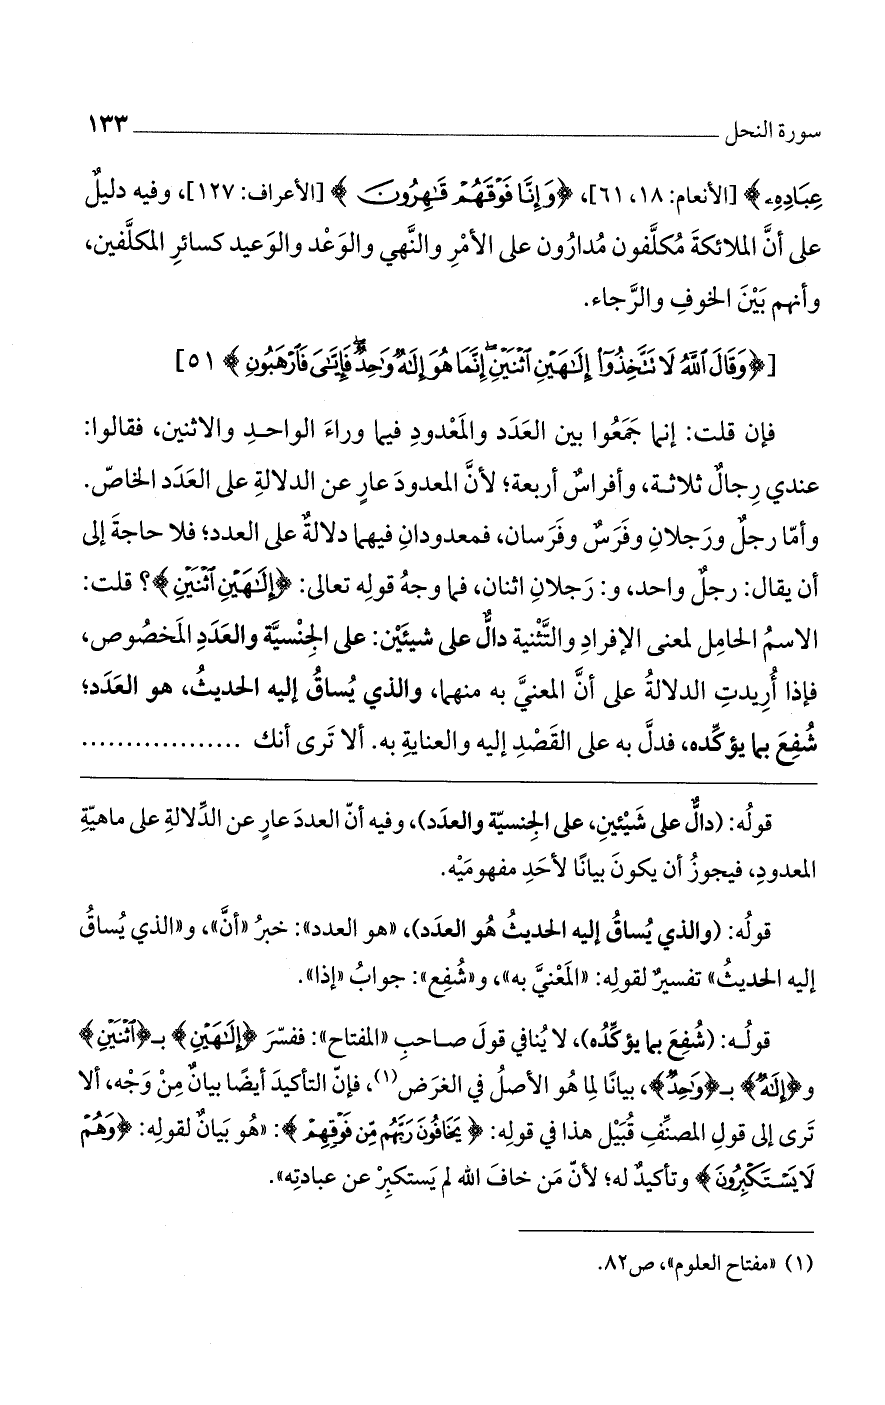 سورة النحل ١٣٣
عِبَادِهِۦ﴾ [الأنعام: ١٨، ٦١]، ﴿وَإِنَّا فَوْقَهُمْ قَٰهِرُونَ﴾ [الأعراف: ١٢٧]، وفيه دليلٌ
على أنَّ الملائكةَ مُكلَّفون مُدارُون على الأمْرِ والنَّهي والوَعْد والوَعيد كسائرِ المكلَّفين،
وأنهم بَيْنَ الخوفِ والرَّجاء.
[﴿وَقَالَ ٱللَّهُ لَا تَتَّخِذُوٓا۟ إِلَٰهَيْنِ ٱثْنَيْنِ ۖ إِنَّمَا هُوَ إِلَٰهٌ وَٰحِدٌ ۖ فَإِيَّٰىَ فَٱرْهَبُونِ﴾ ٥١]
فإن قلت: إنما جَمَعُوا بين العَدَد والمَعْدودِ فيما وراءَ الواحد والاثنين، فقالوا:
عندي رِجالٌ ثلاثة، وأفراسٌ أربعة؛ لأنَّ المعدودَ عارٍ عن الدلالةِ على العَدَد الخاصّ.
وأمّا رجلٌ ورَجلانِ وفَرَسٌ وفَرَسان، فمعدودانِ فيهما دلالةٌ على العدد؛ فلا حاجةَ إلى
أن يقال: رجلٌ واحد، و: رَجلانِ اثنان، فما وجهُ قولِه تعالى: ﴿إِلَٰهَيْنِ ٱثْنَيْنِ﴾؟ قلت:
الاسمُ الحامِل لمعنى الإفرادِ والتَّثْنية دالٌّ على شيئَيْن: على الجِنْسيَّة والعَدَدِ المَخصُوص،
فإذا أُرِيدتِ الدلالةُ على أنَّ المعنيَّ به منهما، والذي يُساقُ إليه الحديثُ، هو العَدَد؛
شُفِعَ بما يؤكِّده، فدلَّ به على القَصْدِ إليه والعنايةِ به. ألا تَرى أنك ..................
قولُه: (دالٌّ على شَيْئينِ، على الجِنسيّة والعدَد)، وفيه أنّ العددَ عارٍ عن الدِّلالةِ على ماهيّةِ
المعدودِ، فيجوزُ أن يكونَ بيانًا لأحَدِ مفهومَيْه.
قولُه: (والذي يُساقُ إليه الحديثُ هُو العدَد)، «هو العدد»: خبرُ «أنَّ»، و«الذي يُساقُ
إليه الحديثُ» تفسيرٌ لقولِه: «المَعْنيَّ به»، و«شُفِع»: جوابُ «إذا».
قولُه: (شُفِعَ بما يؤكِّدُه)، لا يُنافي قولَ صاحبِ «المفتاح»: ففسّرَ ﴿إِلَٰهَيْنِ﴾ بـ﴿ٱثْنَيْنِ﴾
و﴿إِلَٰهٌ﴾ بـ﴿وَٰحِدٌ﴾، بيانًا لِما هُو الأصلُ في الغرَض(١)، فإنّ التأكيدَ أيضًا بيانٌ مِنْ وَجْه، ألا
تَرى إلى قولِ المصنِّفِ قُبَيْل هذا في قولِه: ﴿يَخَافُونَ رَبَّهُم مِّن فَوْقِهِمْ﴾: «هُو بَيانٌ لقولِه: ﴿وَهُمْ
لَا يَسْتَكْبِرُونَ﴾ وتأكيدٌ له؛ لأنّ مَن خافَ الله لم يَستكبِرْ عن عبادتِه».
(١) «مفتاح العلوم»، ص٨٢.